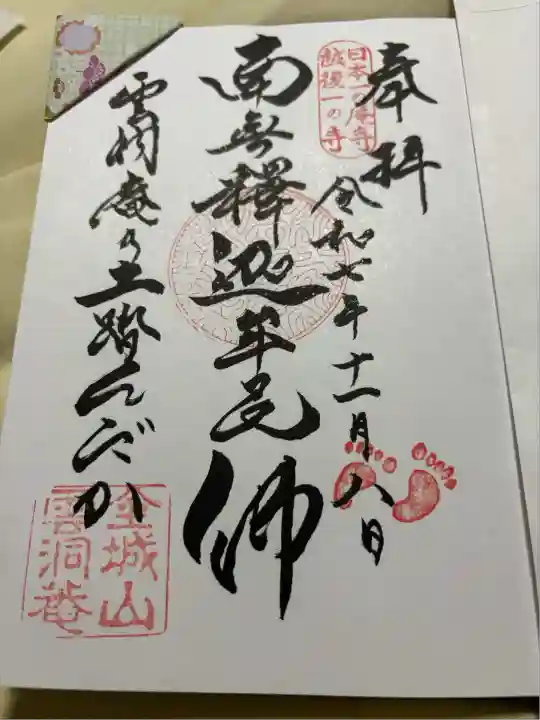 奉拝
日本一の庵寺
越後一の寺
令和七年十一月八日
南無釋迦牟尼佛
雲洞庵の土踏んだか
金城山
雲洞菴